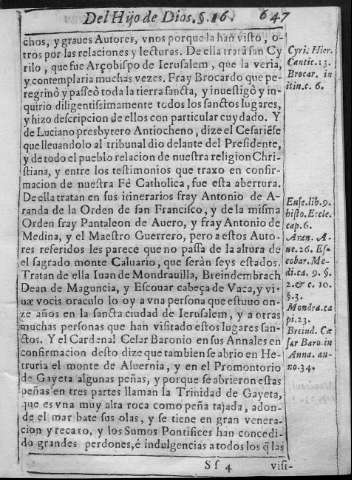 Del Hijo de Dios. §. 16. 647
chos, y graues Autores, vnos porque la han visto, o-
tros por las relaciones y lecturas. De ella tratã san Cy
rilo, que fue Arçobispo de Ierusalem, que la veria,
y contemplaria muchas vezes. Fray Brocardo que pe-
regrinò y passeò toda la tierra sancta, y inuestigò y in-
quirio diligentissimamente todos los sanctos lugares,
y hizo descripcion de ellos con particular cuydado. Y
de Luciano presbytero Antiocheno, dize el Cesariẽse
que lleuandolo al tribunal dio delante del Presidente,
y de todo el pueblo relacion de nuestra religion Chri-
stiana, y entre los testimonios que traxo en confir-
macion de nuestra Fè Catholica, fue esta abertura.
De ella tratan en sus itinerarios fray Antonio de A-
randa de la Orden de san Francisco, y de la misma
Orden fray Pantaleon de Auero, y fray Antonio de
Medina, y el Maestro Guerrero, pero a estos Auto-
res referidos les parece que no passa de la altura de
el sagrado monte Caluario, que seràn seys estados.
Tratan de ella Iuan de Mondrauilla, Breindembrach
Dean de Maguncia, y Escouar cabeça de Vaca, y vi-
uæ vocis oraculo lo oy a vna persona que estuuo on-
ze años en la sancta ciudad de Ierusalem, y a otras
muchas personas que han visitado estos lugares san-
ctos. Y el Cardenal Cesar Baronio en sus Annales en
confirmacion desto dize que tambien se abrio en He-
truria el monte de Aluernia, y en el Promontorio
de Gayeta algunas peñas, y porque se abrieron estas
peñas en tres partes llaman la Trinidad de Gayeta,
que es vna muy alta roca como peña tajada, adon-
de el mar bate sus olas, y se tiene en gran venera-
cion y recato, y los Sumos Pontifices han concedi-
do grandes perdones, è indulgencias a todos los q̃ las
Sf 4 visi-
Cyri. Hier.
Cantic. 13.
Brocar. in
itin. c. 6.
Euse. lib. 9.
histo. Eccle.
cap. 6.
Aran. A-
ue. 26. Es-
cobar. Me-
di. ca. 9. §.
2. & c. 10.
§. 3.
Mondra. ca
pi. 23.
Breind. Cæ
sar Baro. in
Anna. an-
no. 34.